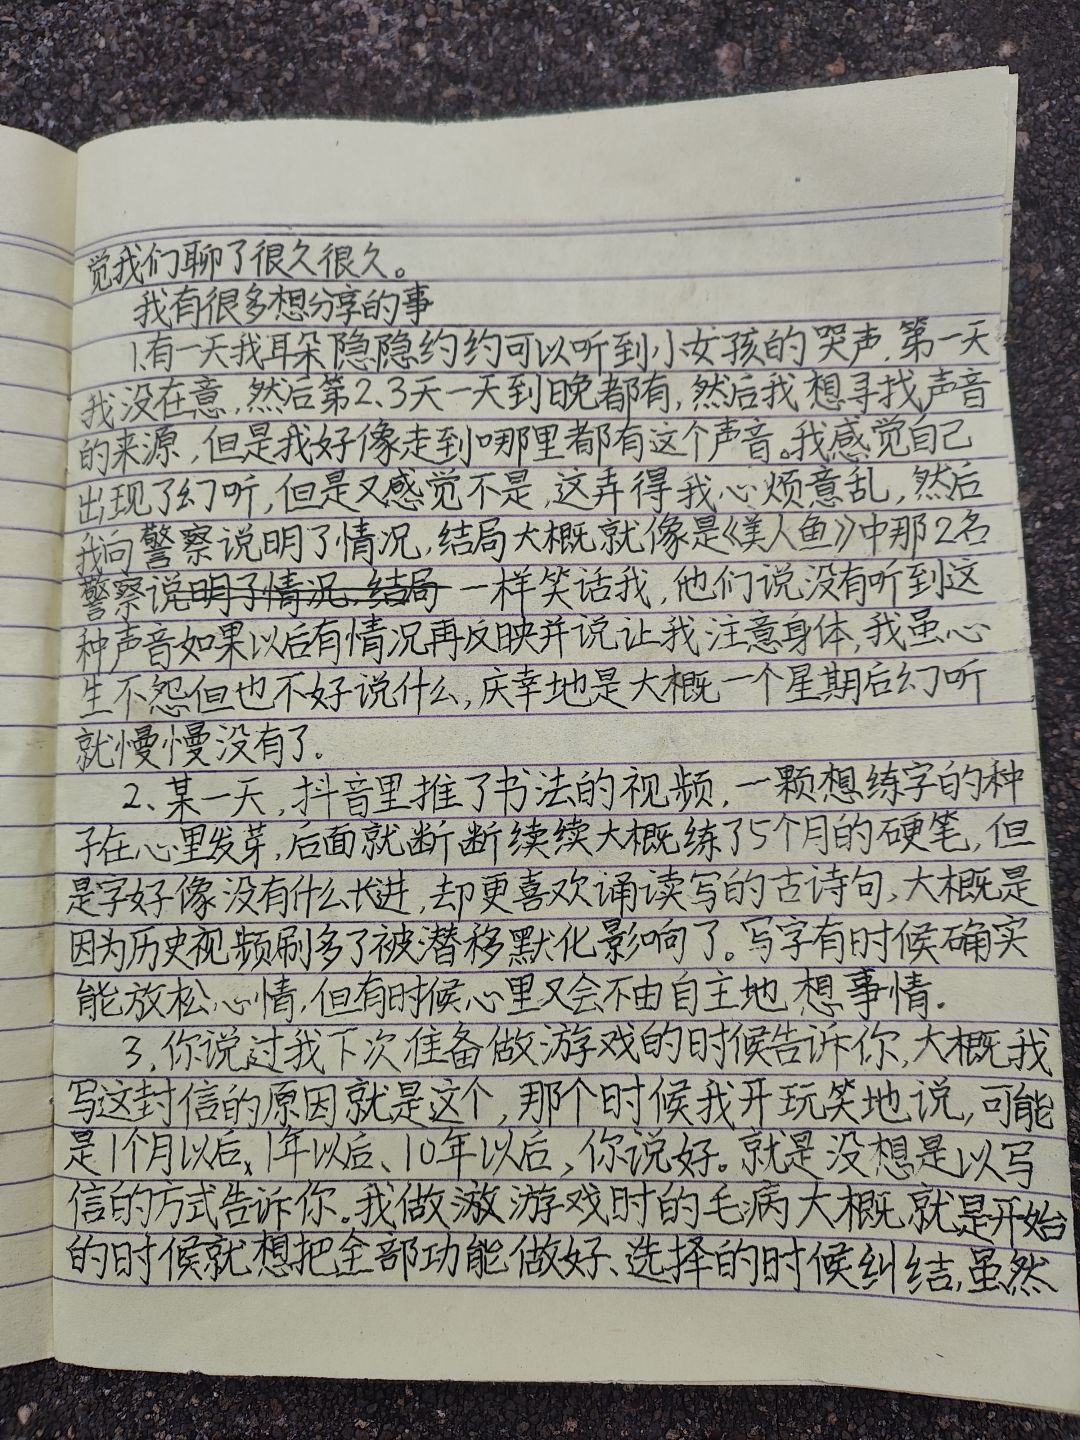 觉我们聊了很久很久。
我有很多想分享的事
1.有一天我耳朵隐隐约约可以听到小女孩的哭声,第一天
我没在意,然后第2、3天一天到晚都有,然后我想寻找声音
的来源,但是我好像走到哪里都有这个声音。我感觉自己
出现了幻听,但是又感觉不是,这弄得我心烦意乱,然后
我向警察说明了情况,结局大概就像是《美人鱼》中那2名
警察说明了情况,结局一样笑话我,他们说没有听到这
种声音如果以后有情况再反映并说让我注意身体,我虽心
生不怨但也不好说什么,庆幸地是大概一个星期后幻听
就慢慢没有了.
2、某一天,抖音里推了书法的视频,一颗想练字的种
子在心里发芽,后面就断断续续大概练了5个月的硬笔,但
是字好像没有什么长进,却更喜欢诵读写的古诗句、大概是
因为历史视频刷多了被潜移默化影响了。写字有时候确实
能放松心情,但有时候心里又会不由自主地想事情.
3、你说过我下次准备做游戏的时候告诉你,大概我
写这封信的原因就是这个,那个时候我开玩笑地说,可能
是1个月以后、1年以后、10年以后,你说好。就是没想是以写
信的方式告诉你。我做游戏时的毛病大概就是开始
的时候就想把全部功能做好、选择的时候纠结,虽然